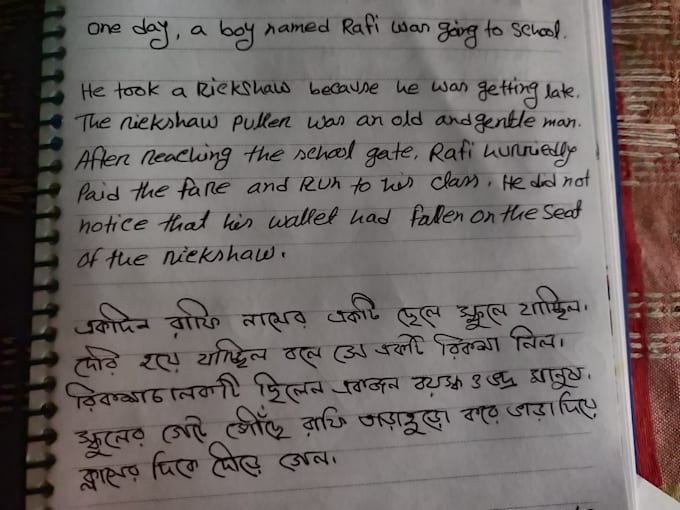 one day, a boy named Rafi was going to school.
He took a Rickshaw because he was getting late.
The rickshaw puller was an old and gentle man.
After reaching the school gate, Rafi hurriedly
Paid the fare and Run to his class. He did not
notice that his wallet had fallen on the seat
of the rickshaw.
একদিন রাফি নামের একটি ছেলে স্কুলে যাচ্ছিল।
দেরি হয়ে যাচ্ছিল বলে সে একটি রিকশা নিল।
রিকশাচালকটি ছিলেন একজন বয়স্ক ও ভদ্র মানুষ।
স্কুলের গেটে পৌঁছে রাফি তাড়াহুড়ো করে ভাড়া দিয়ে
ক্লাসের দিকে দৌড়ে গেল।